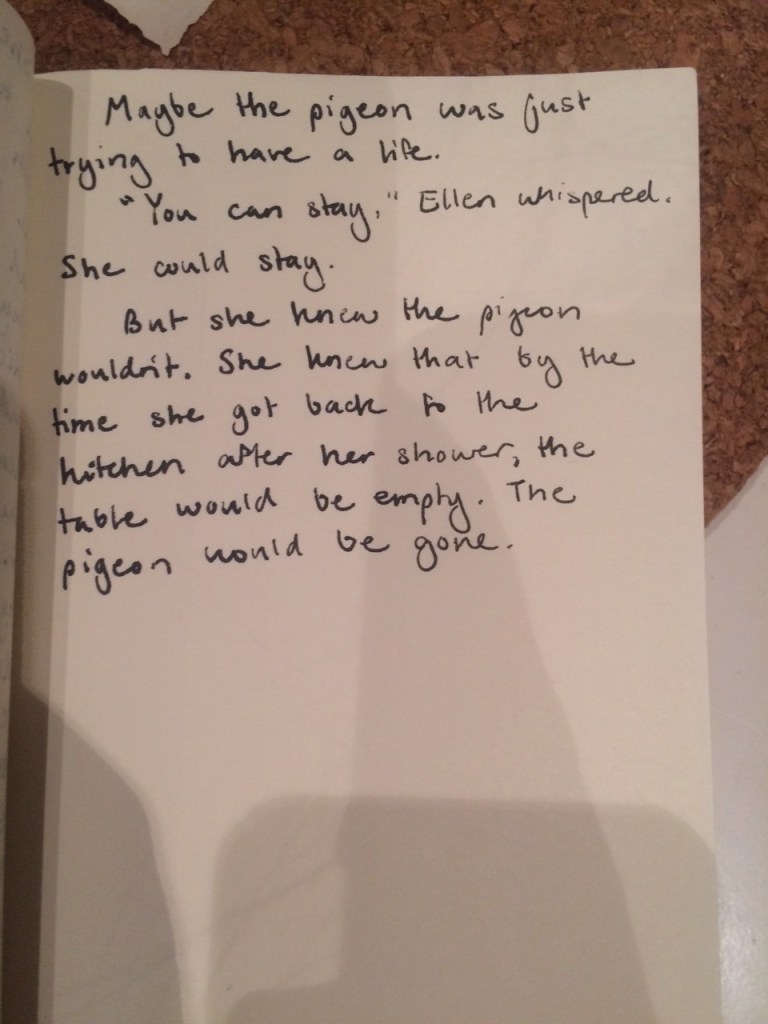 Maybe the pigeon was just
trying to have a life.
"You can stay," Ellen whispered.
She could stay.
But she knew the pigeon
wouldn't. She knew that by the
time she got back to the
kitchen after her shower, the
table would be empty. The
pigeon would be gone.